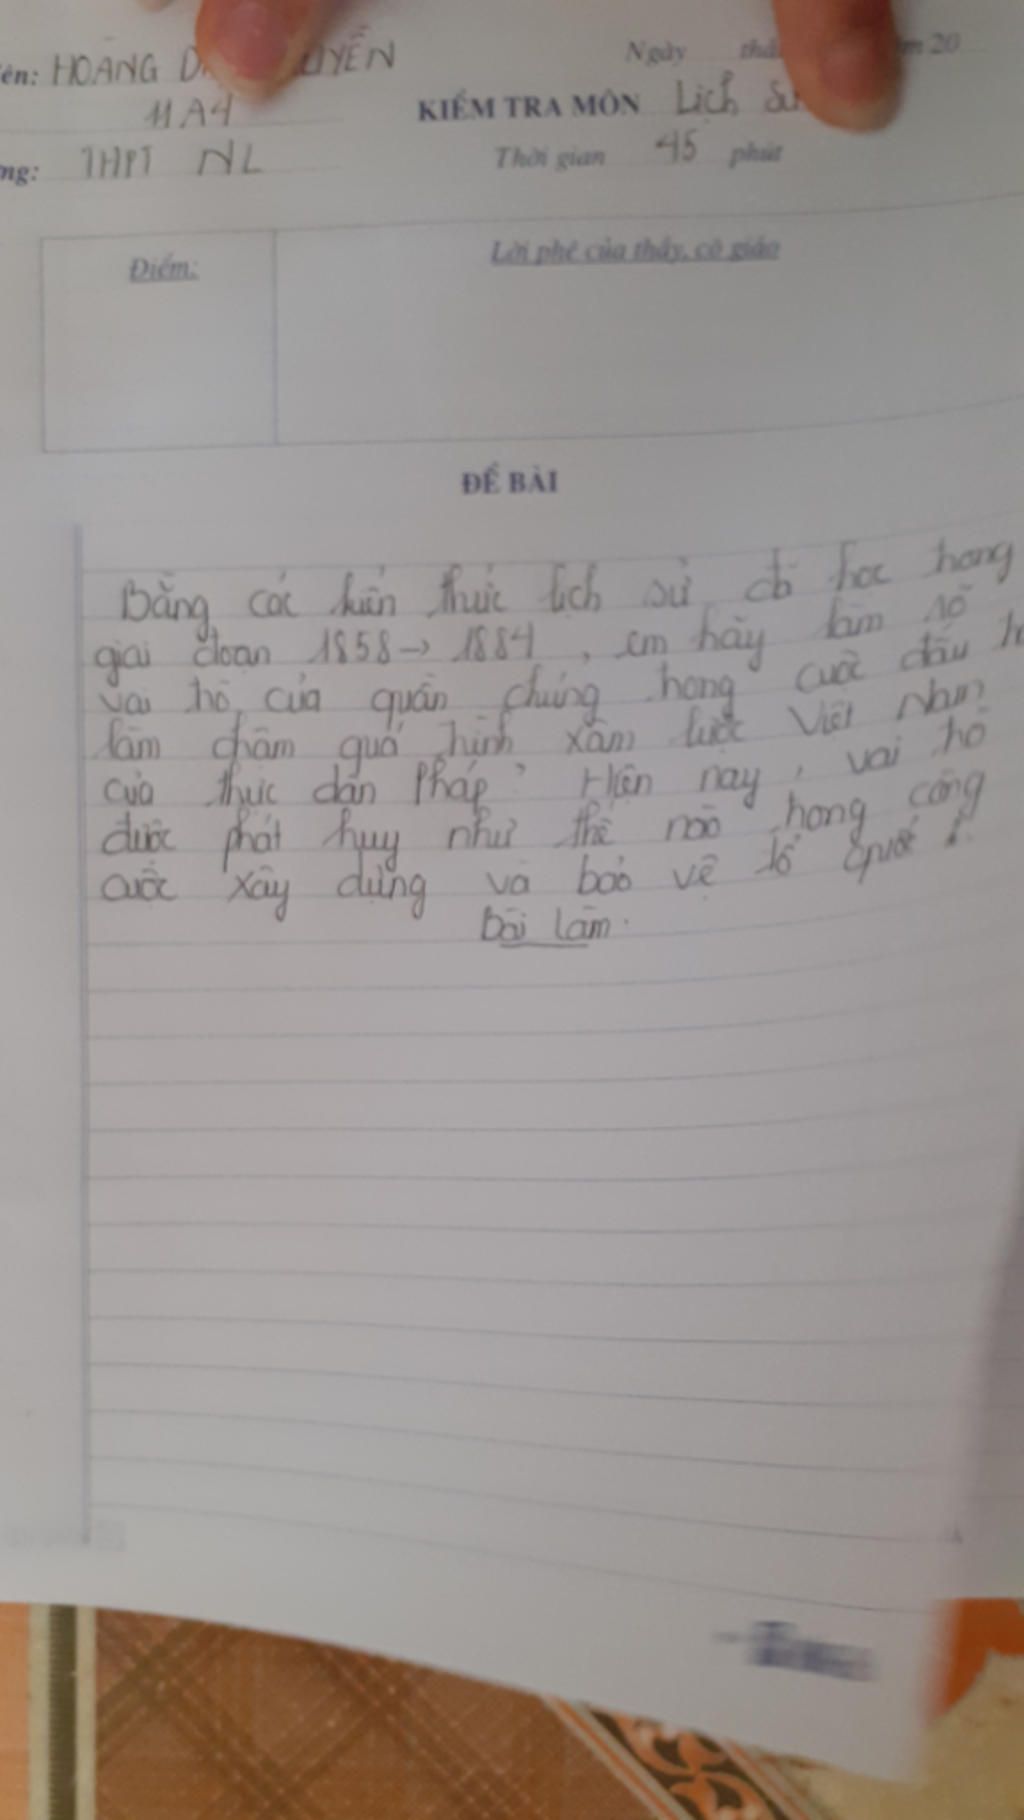 ên: HOÀNG D UYÊN
Ngày thá m 20
11A4
KIỂM TRA MÔN Lịch Sử
ng: THPT NL
Thời gian 45 phút
Điểm:
Lời phê của thầy, cô giáo
ĐỀ BÀI
Bằng các kiến thức lịch sử đã học trong
giai đoạn 1858 → 1884, em hãy làm rõ
vai trò của quần chúng trong cuộc đấu tr
làm chậm quá trình xâm lược Việt Nam
của thực dân Pháp? Hiện nay, vai trò
được phát huy như thế nào trong công
cuộc xây dựng và bảo vệ tổ quốc?
Bài làm.